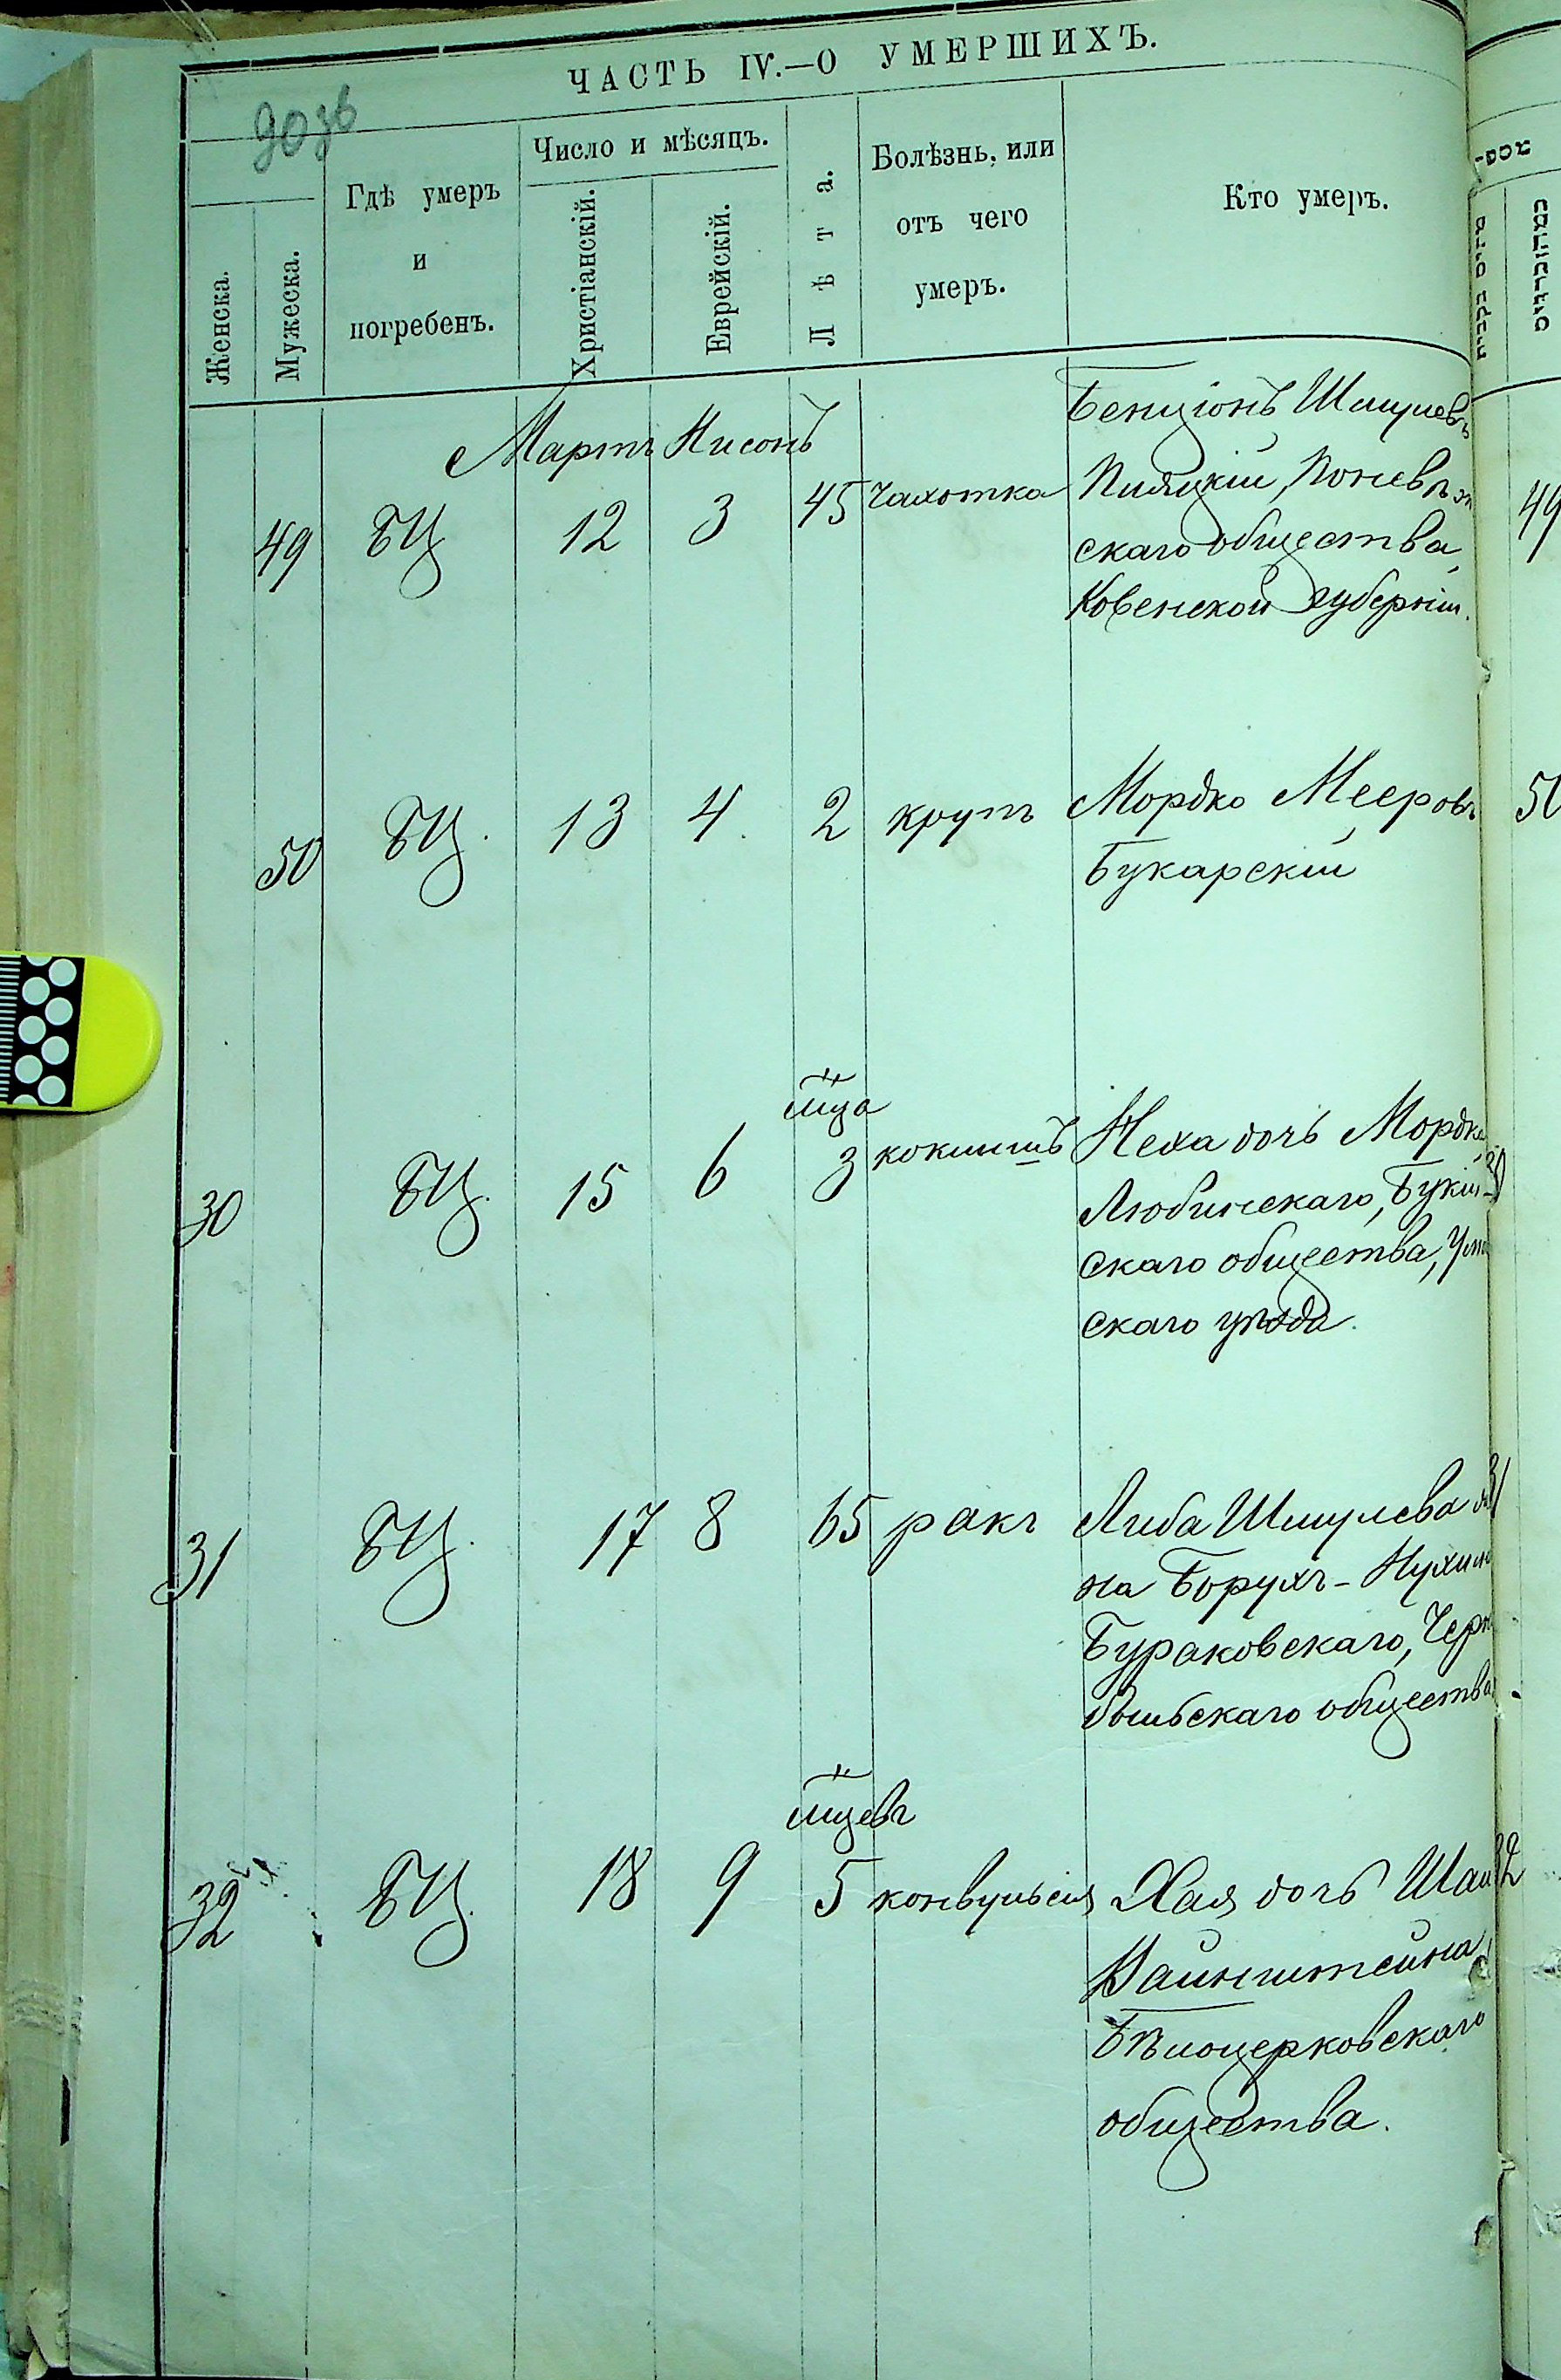 ЧАСТЬ IV.—О УМЕРШИХЪ.
Женска.
Мужеска.
Гдѣ умеръ
и
погребенъ.
Число и мѣсяцъ.
Христіанскій.
Еврейскій.
Лѣта.
Болѣзнь, или
отъ чего
умеръ.
Кто умеръ.
Мартъ Нисонъ
49 БЦ 12 3 45 чахотка
Бенціонъ Шмулевъ
Пиляцкій, Поневѣж
скаго общества,
Ковенской губерніи.
49
50 БЦ. 13 4. 2 крупъ
Мордко Мееровъ
Букарскій
50
30 БЦ. 15 6 м̃ца 3 коклюшъ
Неха дочь Мордка
Любинскаго, Букій-
скаго общества,
скаго уѣзда.
31 БЦ. 17 8 65 ракъ
Либа Шмулева
на Борухъ-Нухим
Бураковскаго, Черн
быльскаго общества
31
32 БЦ. 18 9 м̃цевъ 5 конвульсія
Хая дочь
Вайнштейна,
Бѣлоцерковскаго
общества.
32